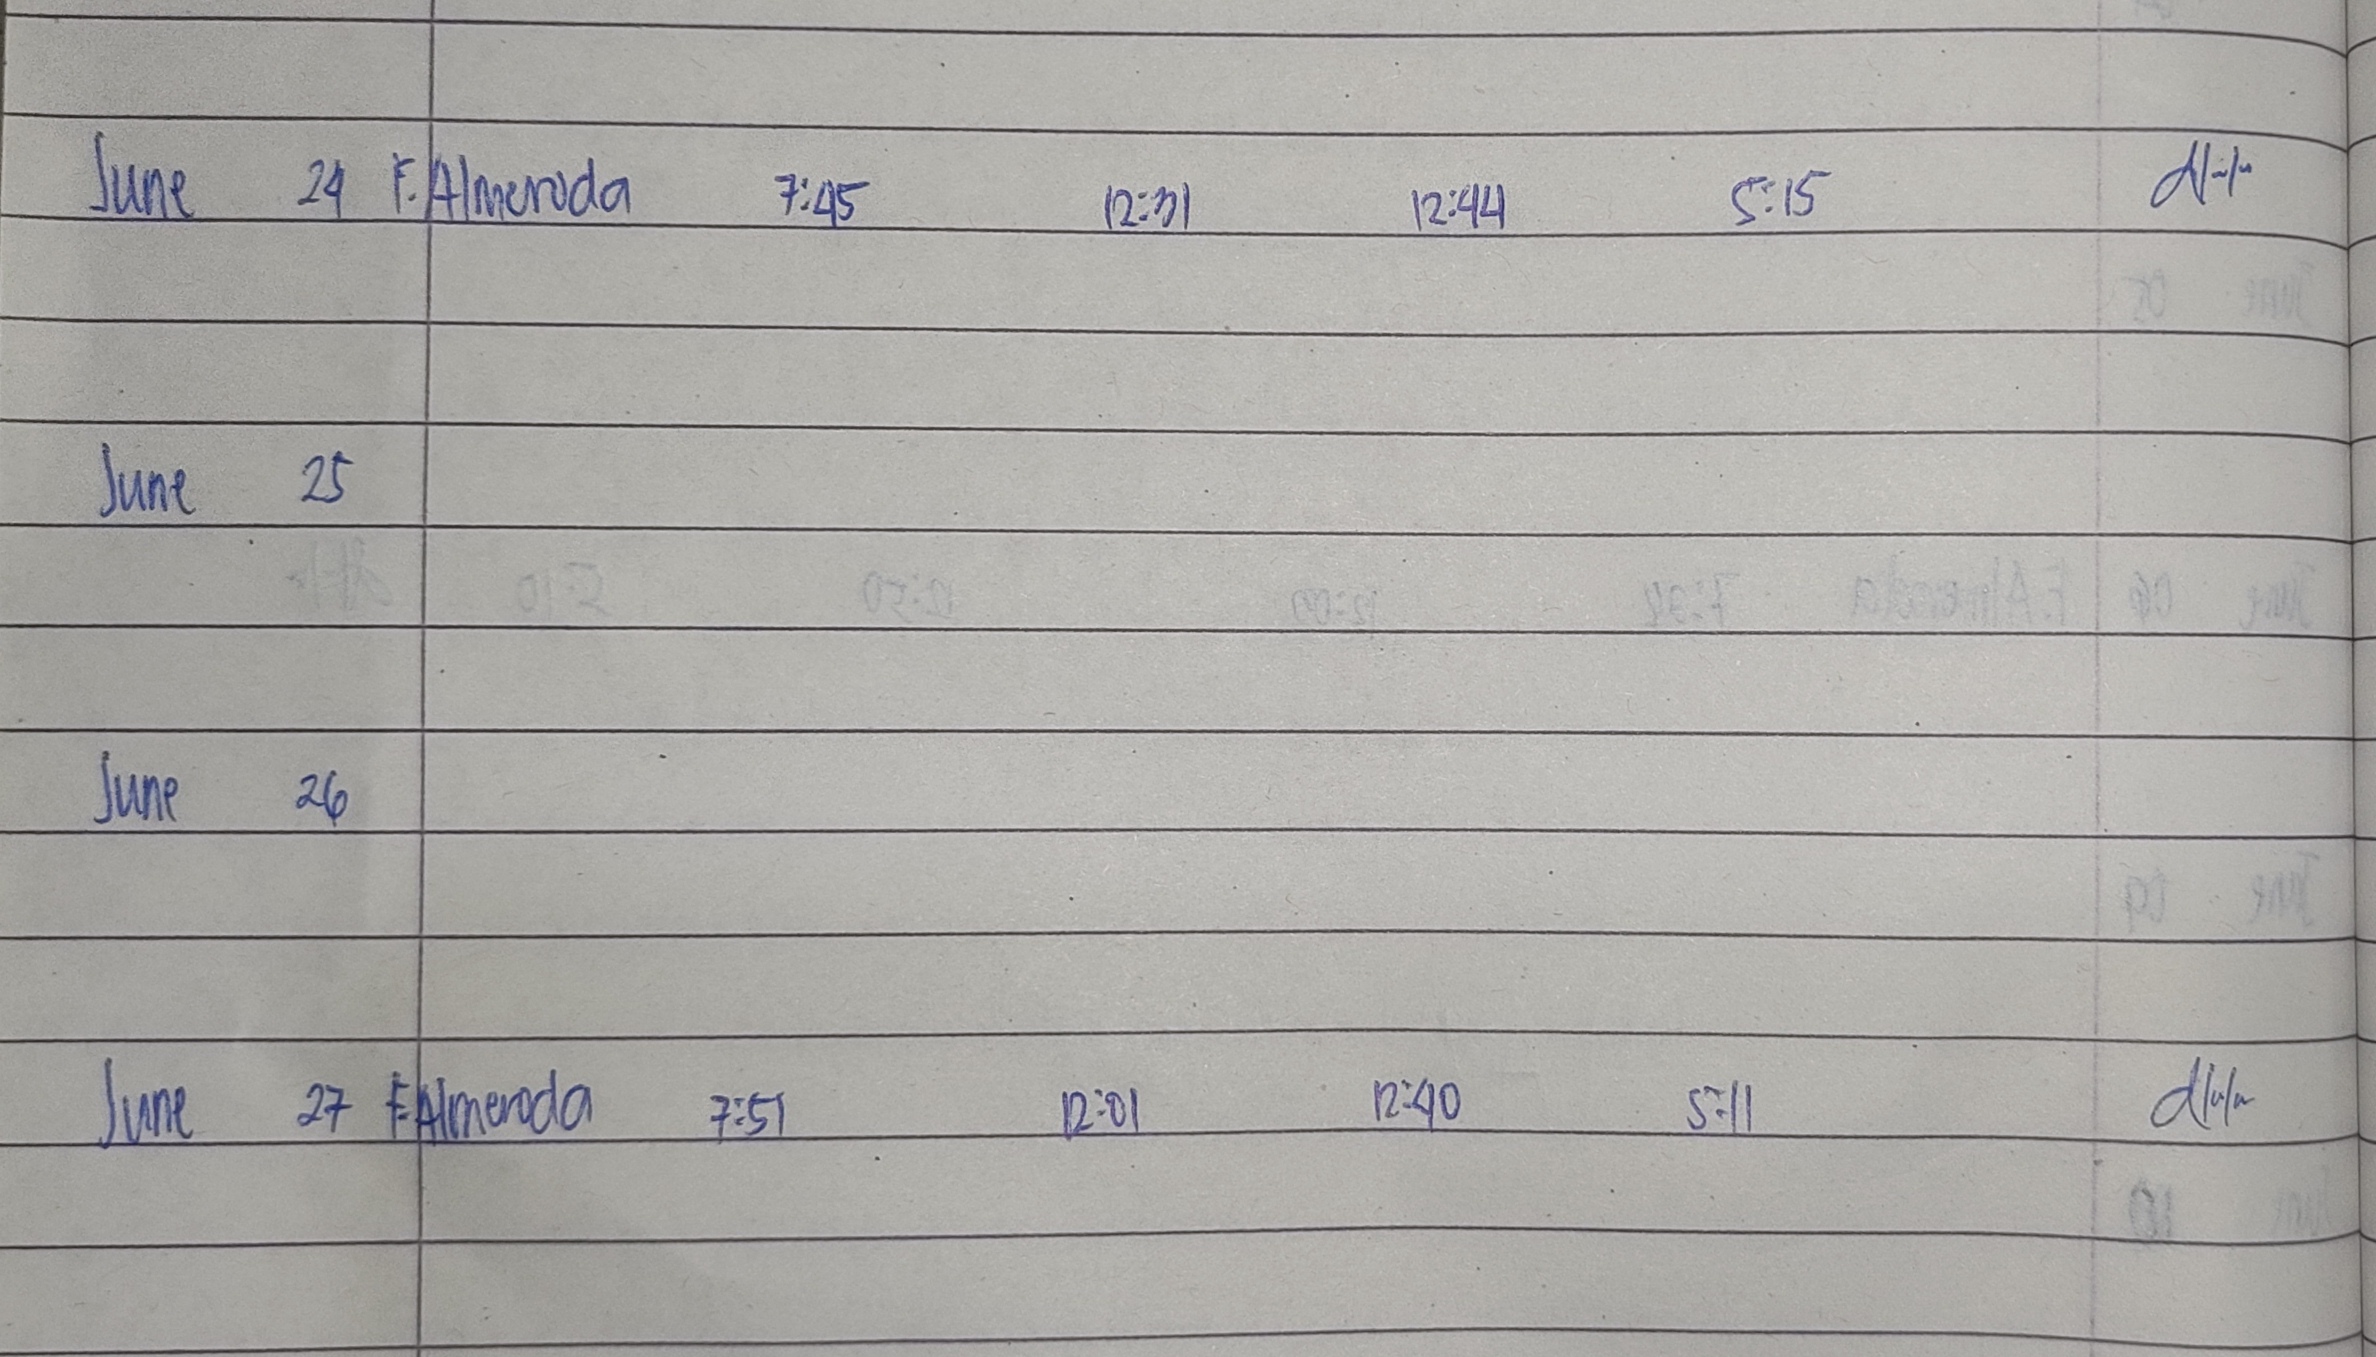 June 24 F. Almeroda 7:45 12:31 12:44 5:15
June 25
June 26
June 27 F. Almeroda 7:51 12:01 12:40 5:11